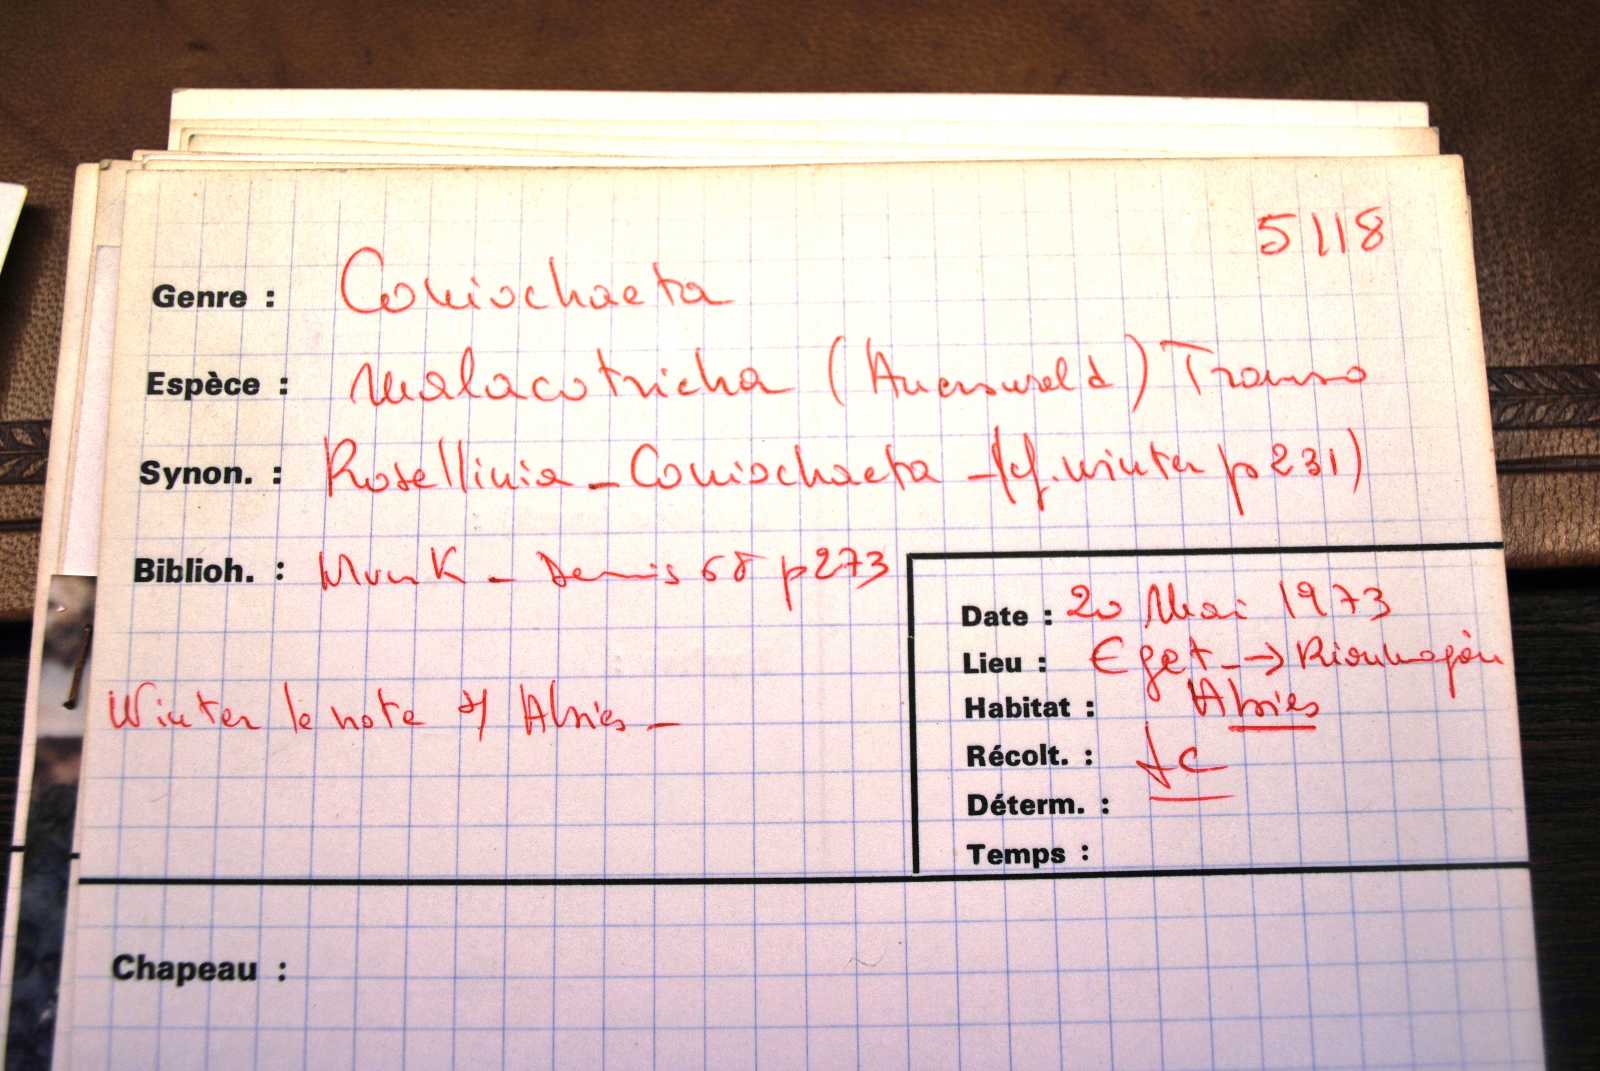 5118
Genre : Coniochaeta
Espèce : malacotricha (Auerswald) Traverso
Synon. : Rosellinia - Coniochaeta - (cf. Winter p 231)
Biblioh. : Munk - Dennis 68 p 273
Date : 20 Mai 1973
Lieu : Eget → Rioumajou
Winter le note s/ Abies -
Habitat : Abies
Récolt. : JC
Déterm. :
Temps :
Chapeau :